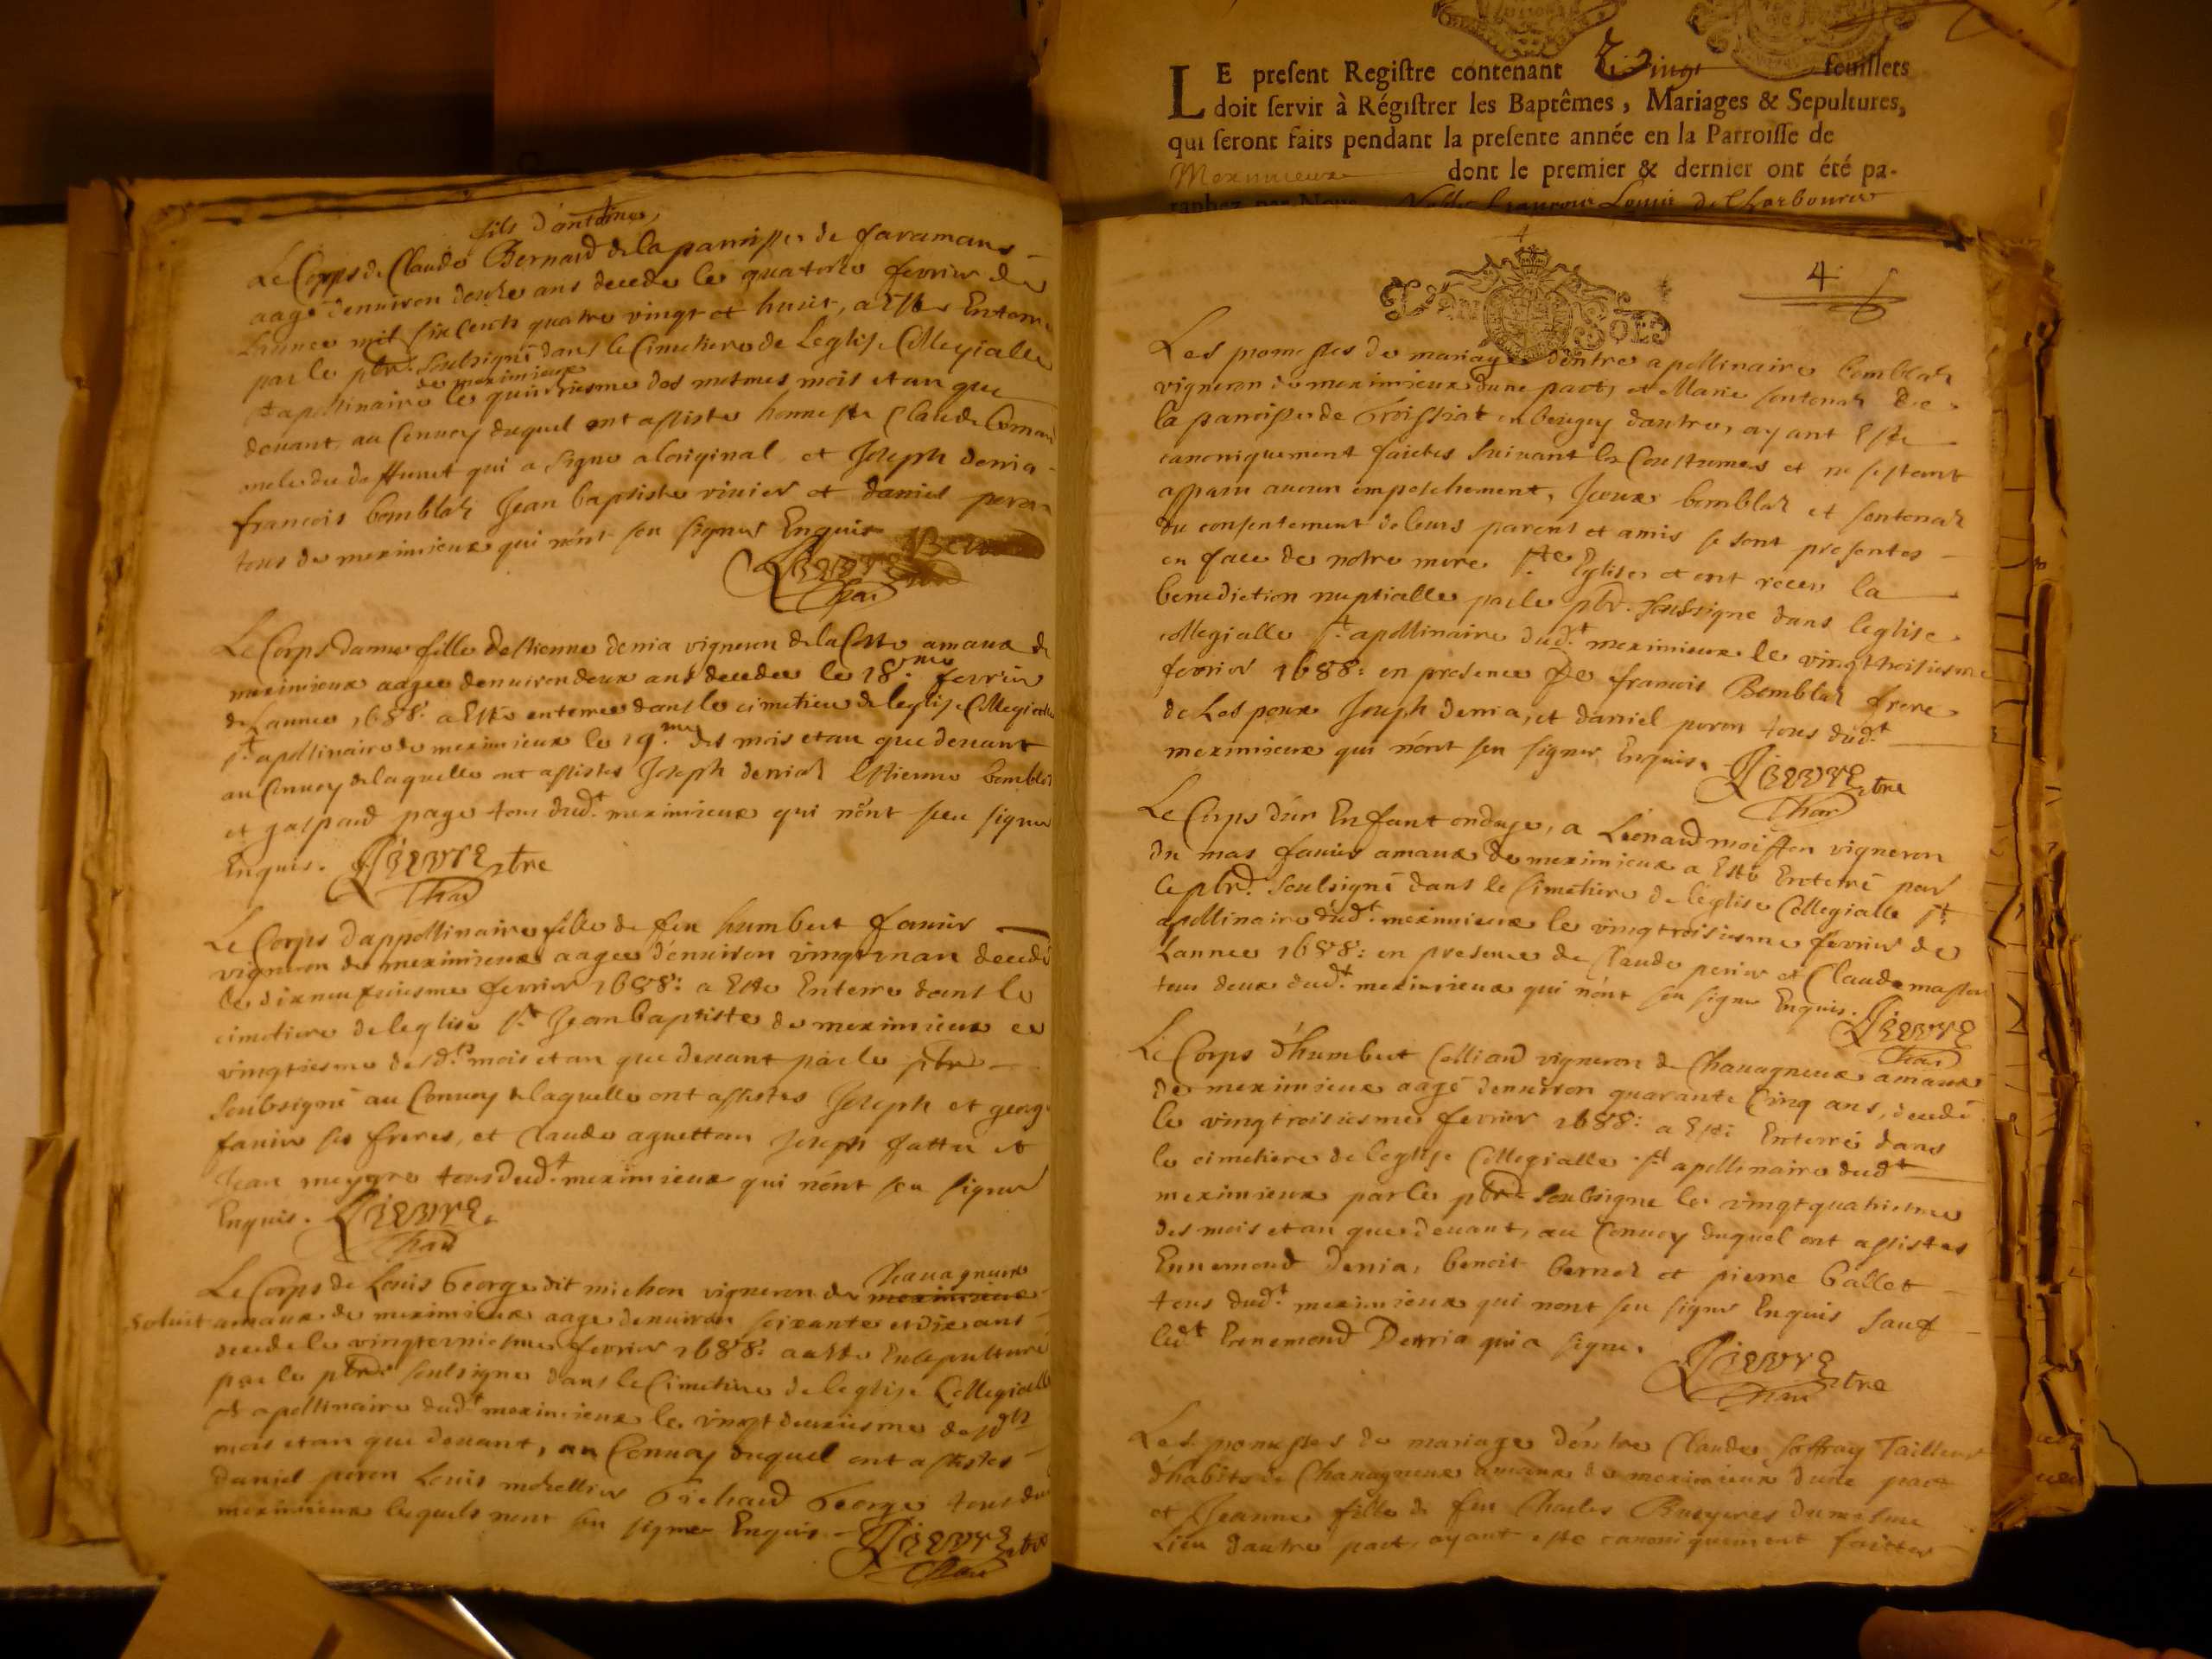 fils d'antoine,
Le Corps de Claude Bernard de la parroisse de faramans
aagé denuiron douze ans decede le quatorze feurier de
Lannee mil six cents quatre vingt et huict, a esté Enterré
par le pbre. soubsigné dans le Cimetiere de Leglise Collegialle
de meximieux
st apollinaire le quinziesme des mesmes mois et an que
deuant, au Conuoy duquel ont assisté honneste Claude
oncle du deffunct qui a signé a loriginal et Joseph denia
francois bomblat Jean baptiste viuier et daniel peron
tous de meximieux qui n'ont sceu signer Enquis
Le Corps danne fille destienne denia vigneron de la Coste amaux de
meximieux aagee denuiron deux ans decedee le 18.me feurier
de Lannee 1688: a Esté enterree dans le cimetiere de leglise Collegialle
st apollinaire de meximieux le 19.me des mois et an que deuant
au Conuoy de laquelle ont assistes Joseph deniat Estienne bomblat
et gaspard page tous dud.t meximieux qui n'ont sceu signer
Enquis.
Le Corps dappollinaire fille de feu humbert fauier
vigneron de meximieux aagee d'enuiron vingt un an decedé
le dixneufuiesme feurier 1688: a Esté Enterré dans le
cimetiere de leglise st Jean baptiste de meximieux ce
vingtiesme desd.ts mois et an que deuant par le pbre
soubsigné au Conuoy de laquelle ont assistes Joseph et george
fauier ses freres, et Claude aguettan Joseph fattu et
Jean meygre tous dud.t meximieux qui n'ont sceu signer
Enquis.
Le Corps de Louis George dit michon vigneron de Chauagnieux
soluit amaux de meximieux aage denuiron soixante et dix ans
decede le vingt vniesme feurier 1688: a esté Ensepulturé
par le pbre soubsigne dans le Cimetiere de leglise Collegialle
st apollinaire dud.t meximieux le vingt deuxiesme desd.ts
mois et an que deuant, au Conuoy duquel ont assistes
daniel peron Louis Gichard George tous de
meximieux lesquels nont sceu signer Enquis
LE present Registre contenant vingt feuillets
doit servir à Régistrer les Baptêmes, Mariages & Sepultures,
qui seront faits pendant la presente année en la Parroisse de
Meximieux dont le premier & dernier ont été pa-
raphez par Nous Noble francois Louis de
4
Les promesses de mariage dentre apollinaire bomblat
vigneron de meximieux dune part, et Marie sontonat de
la parroisse de en beugey dautre, ayant Esté
canoniquement faictes suiuant les Coustumes et ne sestant
apparu aucun empeschement, Iceux bomblat et sontonat
du consentement de leurs parens et amis se sont presentes
en face de notre mere ste Eglise, et ont receu la
benediction nuptialle par le pbre. soubsigne dans leglise
collegialle st apollinaire dud.t meximieux le vingt troisiesme
feurier 1688: en presence de francois Bomblat frere
de Lespoux Joseph denia, et daniel peron tous dud.t
meximieux qui n'ont sceu signer, Enquis.
Le Corps d'un Enfant ondoye, a Leonard moisson vigneron
du mas fauier amaux de meximieux a Esté Enterré par
le pbre. soubsigné dans le Cimetiere de leglise Collegialle st
apollinaire dud.t meximieux le vingt troisiesme feurier de
Lannee 1688: en presence de Claude perier et Claude
tous deux dud.t meximieux qui n'ont sceu signe Enquis.
Le Corps d'humbert Colliard vigneron de Chauagnieux amaux
de meximieux aagé denuiron quarante Cinq ans, decedé
le vingt troisiesme feurier 1688: a Esté Enterré dans
le cimetiere de leglise Collegialle st apollinaire dud.t
meximieux par le pbre soubsigne le vingt quatriesme
des mois et an que deuant, au Conuoy duquel ont assistes
Ennemond denia, benoit bernet et pierre Gallet
tous dud.t meximieux qui nont sceu signer Enquis sauf
led.t Ennemond Denia qui a signe.
Les promesses de mariage d'entre Claude Joffray Tailleur
d'habits de Chauagnieux amaux de meximieux dune part
et Jeanne fille de feu Charles Bruyeres du mesme
Lieu dautre part, ayant esté canoniquement faittes